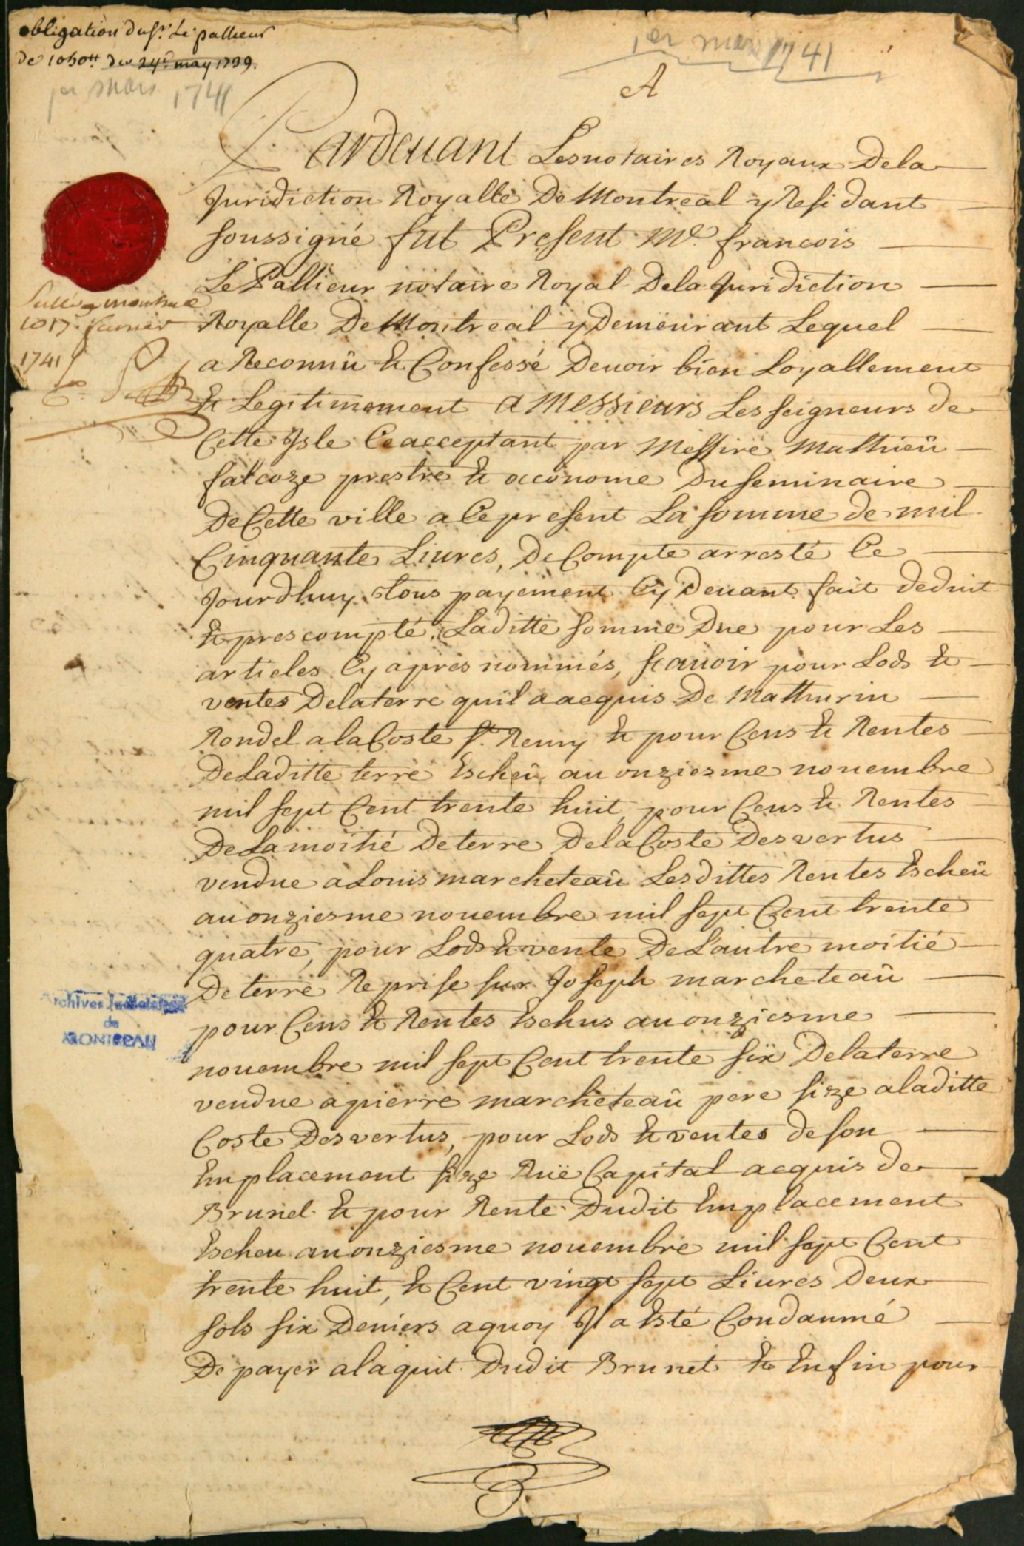 obligation du Sr. Le pallieur
de 1050tt du 24e may 1739.
1er mars 1741
1er mars 1741
A
Pardeuant Les notaires Royaux De la
Juridiction Royalle De Montreal y Residant
soussigné fut Present Me. francois
Le Pallieur notaire Royal De la Juridiction
Royalle De Montreal y Demeurant Lequel
a Reconnû & Confessé Deuoir bien Loyallement
& Legitimement A Messieurs Les seigneurs de
Cette Isle Ce acceptant par Messire Mathieû
falcoze prestre & oeconome Du seminaire
De Cette ville a Ce present La somme de mil
Cinquante Liures, De Compte arresté Ce
Jourdhuy tous payement Cy Deuant fait deduit
& prescompté, Laditte somme Due pour Les
articles Cy apres nommés, scauoir pour Lods &
ventes De la terre quil a acquis De Mathurin
Rondel a la Coste St. Remy & pour Cens & Rentes
De Laditte terre Escheû au onziesme nouembre
mil sept Cent trente huit, pour Cens & Rentes
De La moitié De terre De la Coste Des vertus
vendue a Louis marcheteaû Lesdittes Rentes Escheû
au onziesme nouembre mil sept Cent trente
quatre, pour Lods & vente De L'autre moitié
De terre Reprise sur Joseph marcheteaû
pour Cens & Rentes Eschus au onziesme
nouembre mil sept Cent trente six De la terre
vendue a pierre marcheteaû pere size a laditte
Coste Des vertus, pour Lods & ventes de son
Emplacement size Ruë Capital acquis de
Brunel & pour Rente Dudit Emplacement
Escheu au onziesme nouembre mil sept Cent
trente huit, & Cent vingt sept Liures Deux
sols six Deniers a quoy Il a Esté Condamné
De payer a laquit Dudit Brunet & Enfin pour
1741
Archives Judiciaires
de
MONTREAL